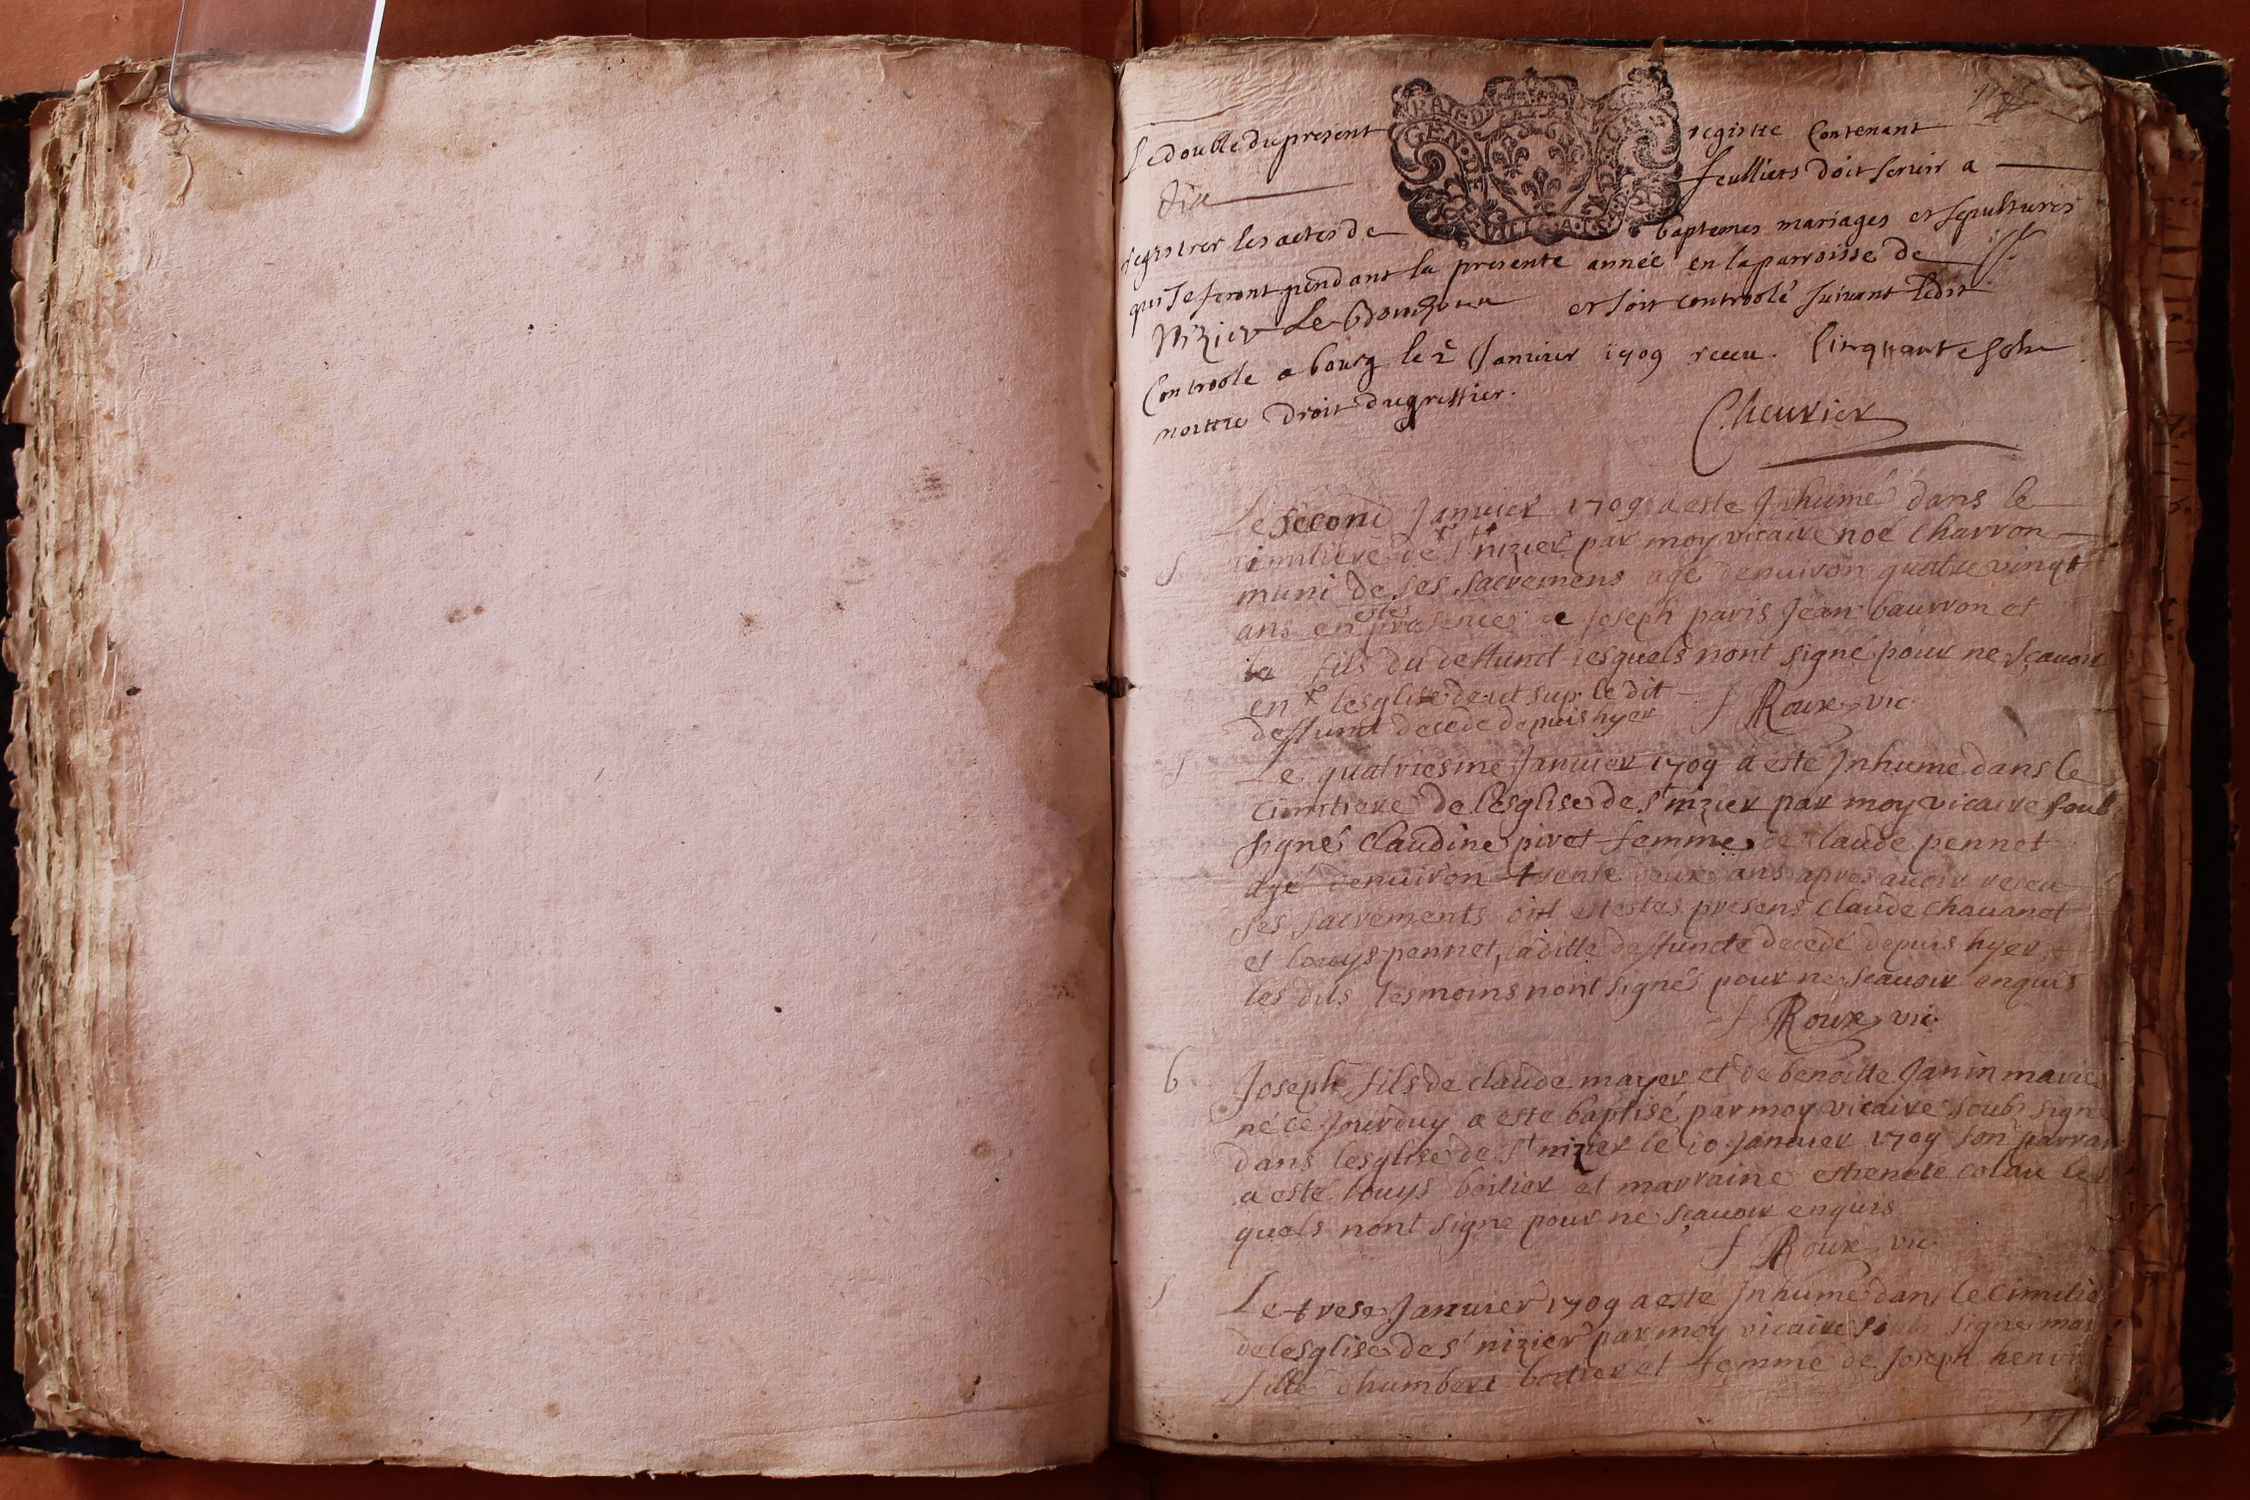 1709
Le double du present registre contenant
dix feulliets doit servir a
registrer les actes de baptemes mariages et sepultures
qui se feront pendant la presente année en la parroisse de St
Nizier Le bouchoux et soit controolé suivant ledit
Controole a bourg le 2e Janvier 1709 receu. Cinquante sols
moittie droit du greffier.
Cheurier
Le second Januier 1709 a este Jnhumé dans le
S cimitiere de st nizier par moy vicaire noe Charron
muni de ses sacremens agé denuiron quatre vingt
ans en presences de Joseph paris Jean bauron et
fils du deffunct lesquels nont signé pour ne sçauoir
en lesglise de ut sup. le dit
deffunct decede depuis hyer J Roux vic.
S Le quatriesme Januier 1709 a esté Jnhume dans le
Cimitiere de lesglise de st nizier par moy vicaire soub
signé Claudine pivet femme de claude pennet
agé denuiron trente deux ans apres auoir receu
ses sacrements presens Claude Chauanet
et louys pennet, ladille deffuncte decedé depuis hyer
les dits tesmoins nont signés pour ne scauoir enquis
J Roux vic.
b Joseph fils de claude mayer et de benoitte Janin mariés
né ce Jourduy a este baptisé par moy vicaire soub signé
dans lesglise de st nizier le 10 Januier 1709 son parrai
a esté louys bertier et marraine estienete les
quels nont signe pour ne sçauoir enquis
J Roux vic.
S Le trese Januier 1709 a esté Jnhumé dans le Cimitie
de lesglise de st nizier par moy vicaire signe mar
fille dhumbert et femme de Joseph henri